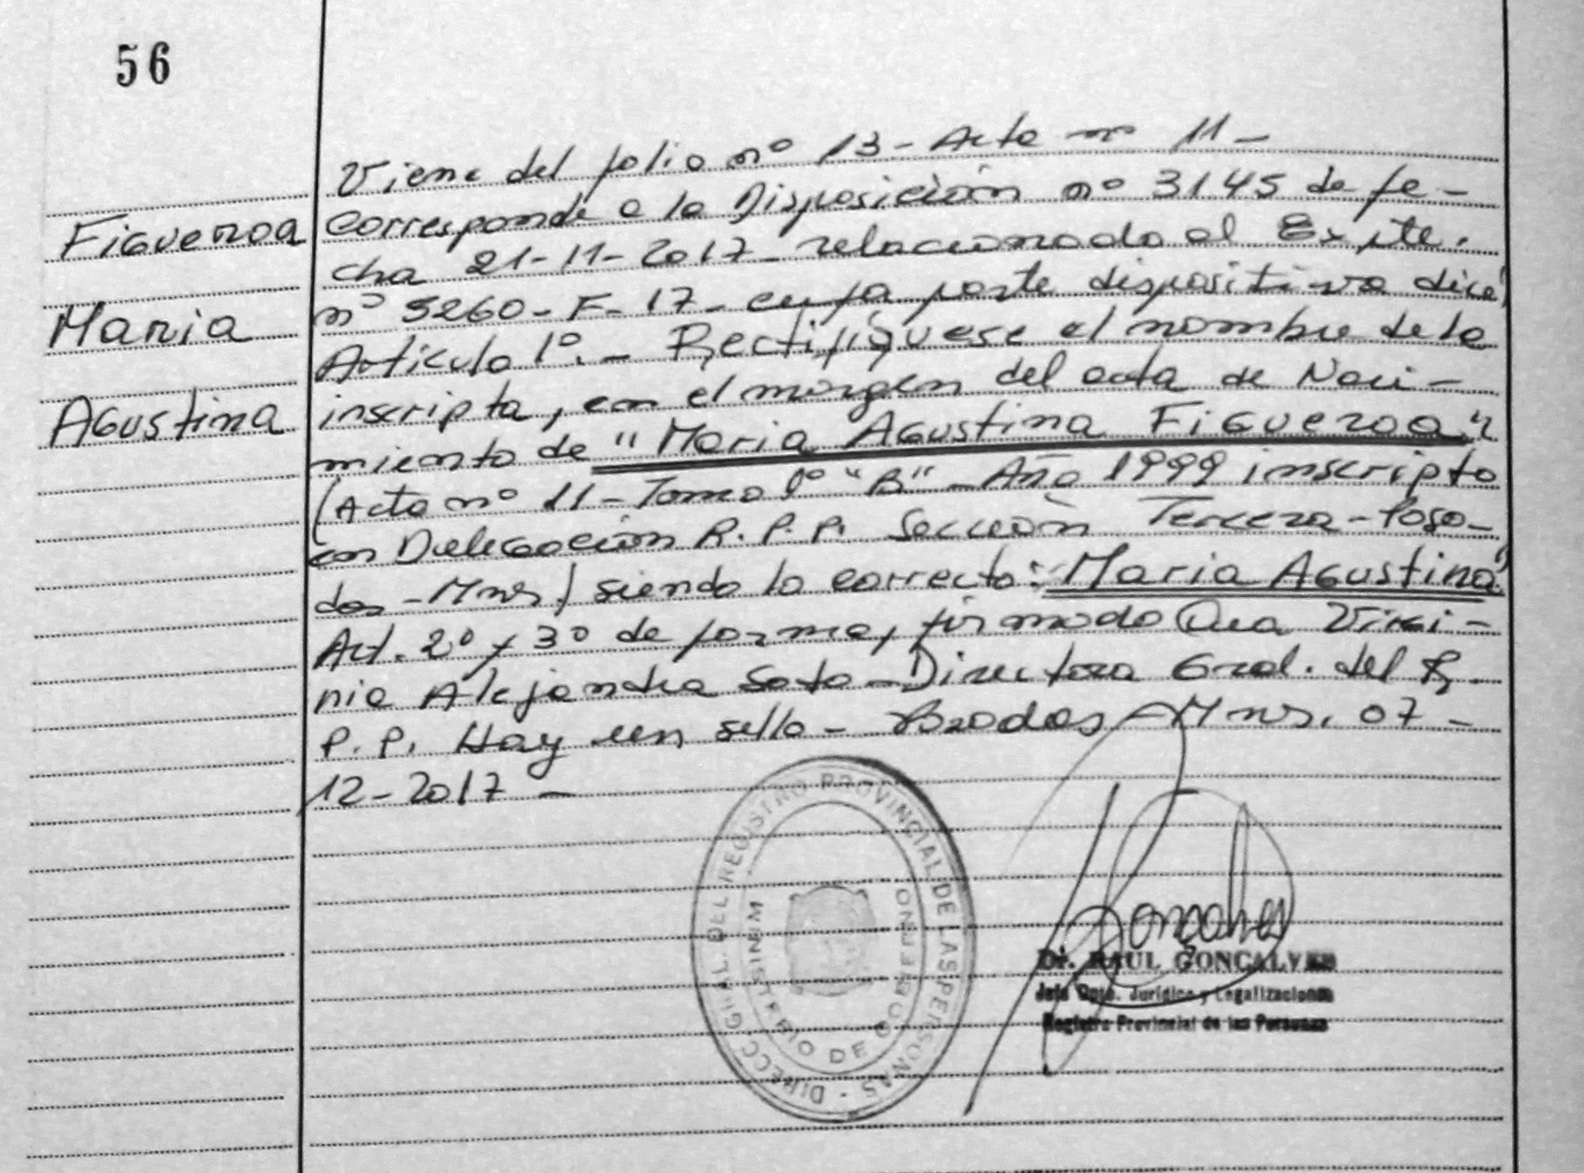 56
Figueroa
Maria
Agustina
Viene del folio nº 13 - Acta nº 11 -
Corresponde a la Disposición nº 3145 de fe-
cha 21-11-2017 - relacionado al Expte.
nº 5260 - F - 17 - cuya parte dispositiva dice:
Articulo 1º. - Rectifíquese el nombre de la
inscripta, en el margen del acta de Naci-
miento de "Maria Agustina Figueroa"
(Acta nº 11 - Tomo 1º "B" - Año 1999 inscripto
en Delegación R. P. P. Sección Tercera - Posa-
das - Mns) siendo lo correcto: "Maria Agustina"
Art. 2º y 3º de forma, firmado Dra Virgi-
nia Alejandra Soto - Directora Gral. del R.
P. P. Hay un sello - Posadas - Mns. 07 -
12 - 2017 -
DIRECC. GRAL. DEL REGISTRO PROVINCIAL DE LAS PERSONAS -
MINISTERIO DE GOBIERNO
Dr. RAUL GONÇALVES
Jefe Dpto. Jurídico y Legalizaciones
Registro Provincial de las Personas